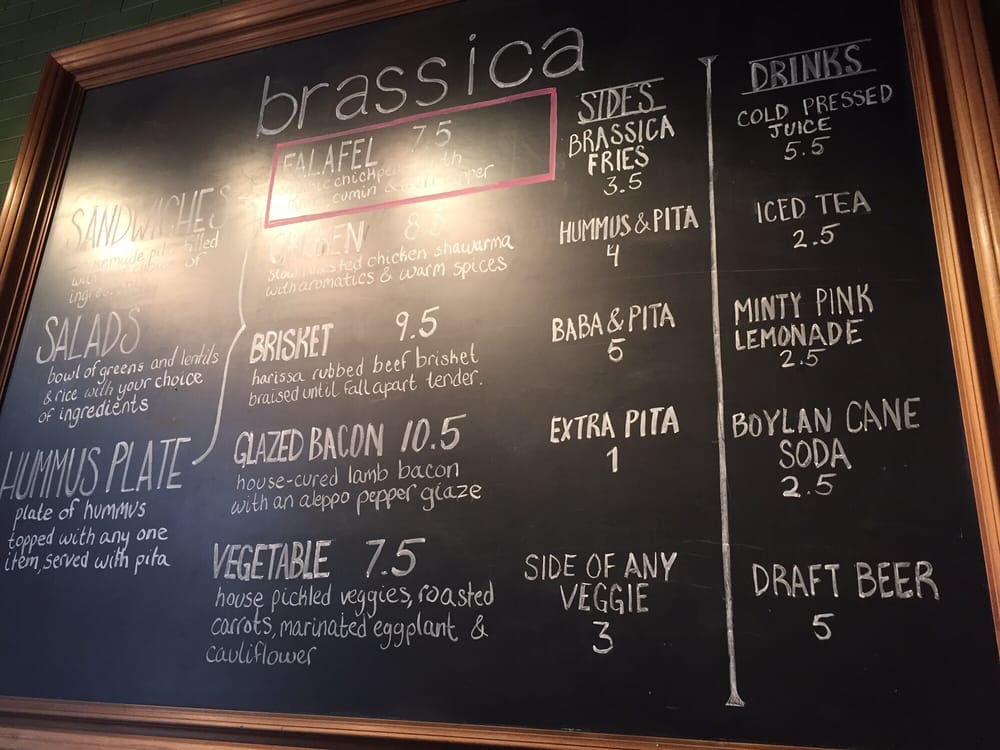 brassica
SANDWICHES
filled
of
SALADS
bowl of greens and lentils
& rice with your choice
of ingredients
HUMMUS PLATE
plate of hummus
topped with any one
item, served with pita
FALAFEL 7.5
with
cumin &
CHICKEN
slow roasted chicken shawarma
with aromatics & warm spices
BRISKET 9.5
harissa rubbed beef brisket
braised until fall apart tender.
GLAZED BACON 10.5
house-cured lamb bacon
with an aleppo pepper glaze
VEGETABLE 7.5
house pickled veggies, roasted
carrots, marinated eggplant &
cauliflower
SIDES
BRASSICA
FRIES
3.5
HUMMUS & PITA
4
BABA & PITA
5
EXTRA PITA
1
SIDE OF ANY
VEGGIE
3
DRINKS
COLD PRESSED
JUICE
5.5
ICED TEA
2.5
MINTY PINK
LEMONADE
2.5
BOYLAN CANE
SODA
2.5
DRAFT BEER
5